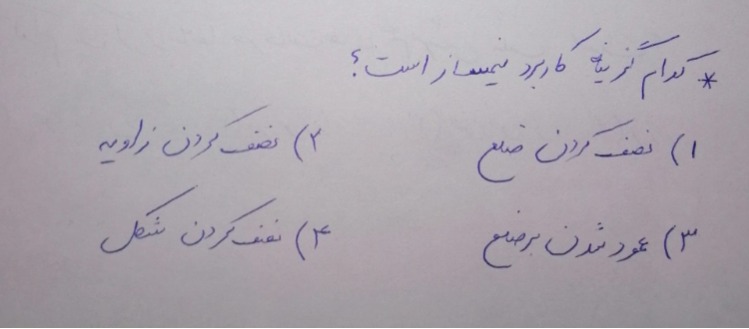 * کدام گزینهٔ کاربرد نیمساز است؟
۱) نصف کردن ضلع ۲) نصف کردن زاویه
۳) عمود شدن بر ضلع ۴) نصف کردن شکل